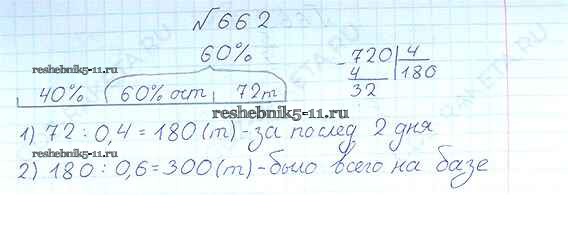 № 662
60%
reshebnik5-11.ru
40% 60% ост 72т
720 | 4
4 180
32
reshebnik5-11.ru
1) 72 : 0,4 = 180 (т) - за послед 2 дня
reshebnik5-11.ru
2) 180 : 0,6 = 300 (т) - было всего на базе